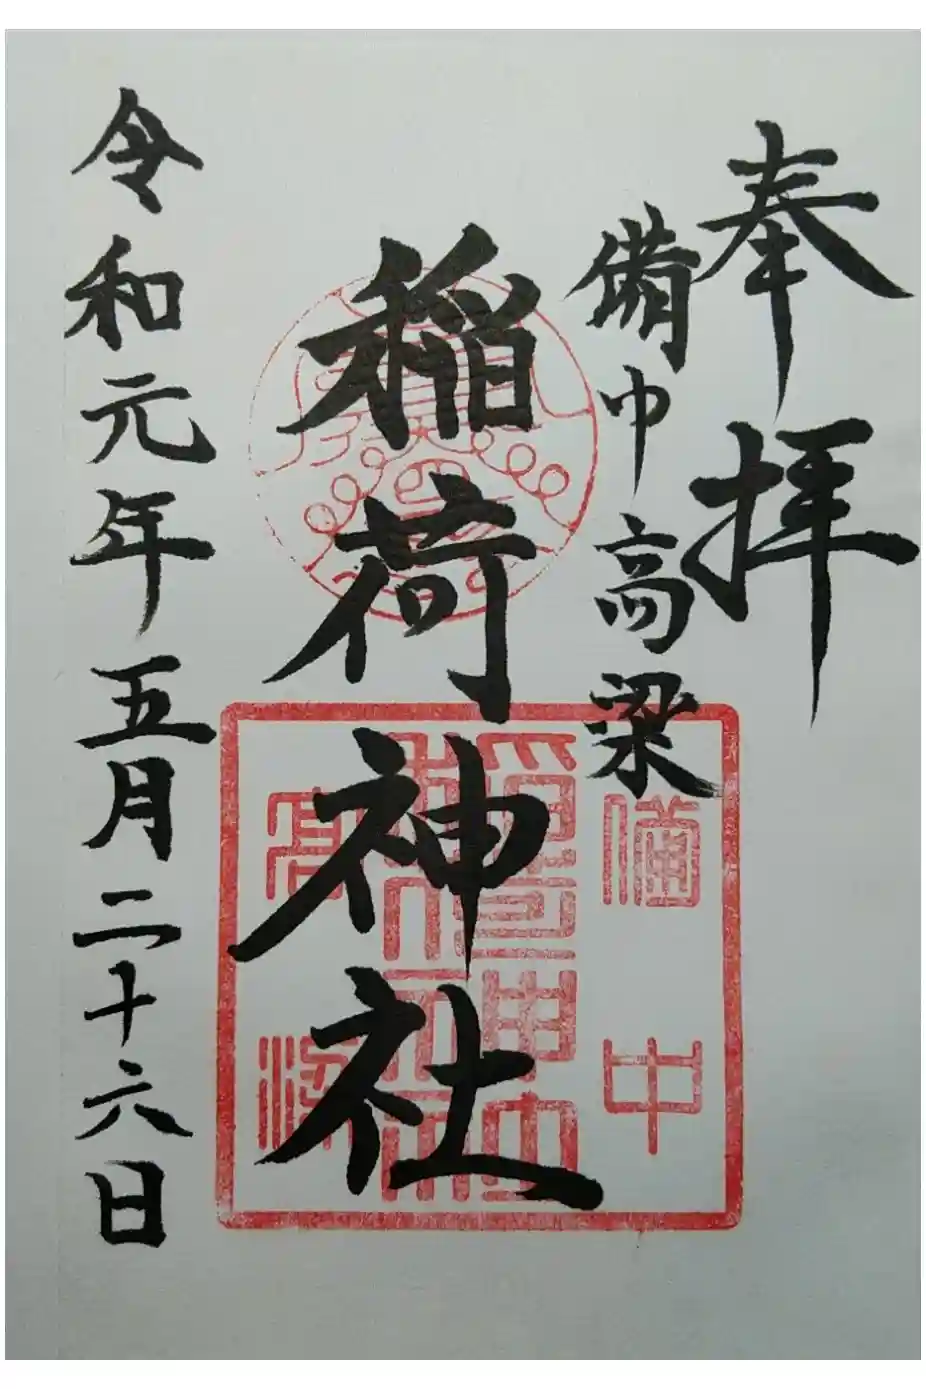 奉拝
備中高梁
稲荷神社
令和元年五月二十六日
備中
高梁